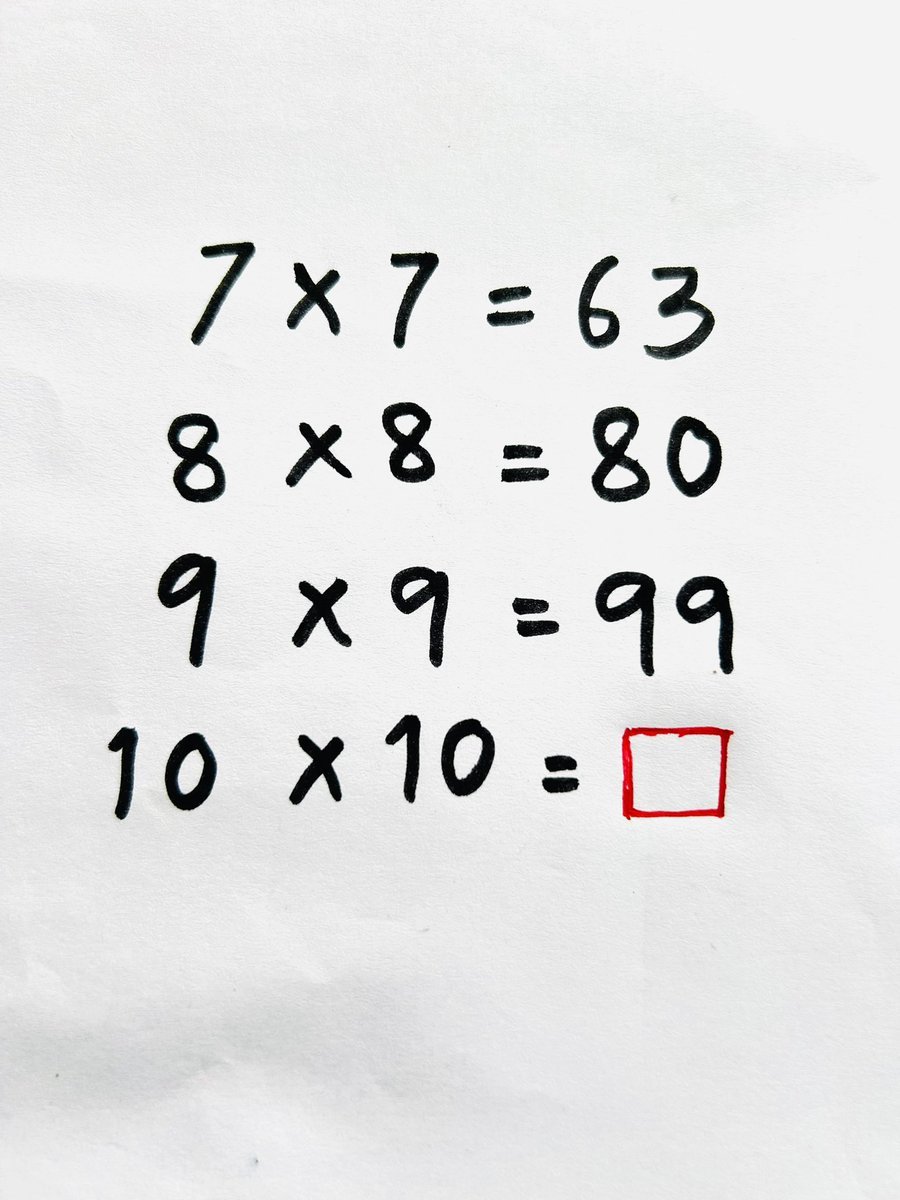 7 × 7 = 63
8 × 8 = 80
9 × 9 = 99
10 × 10 = □